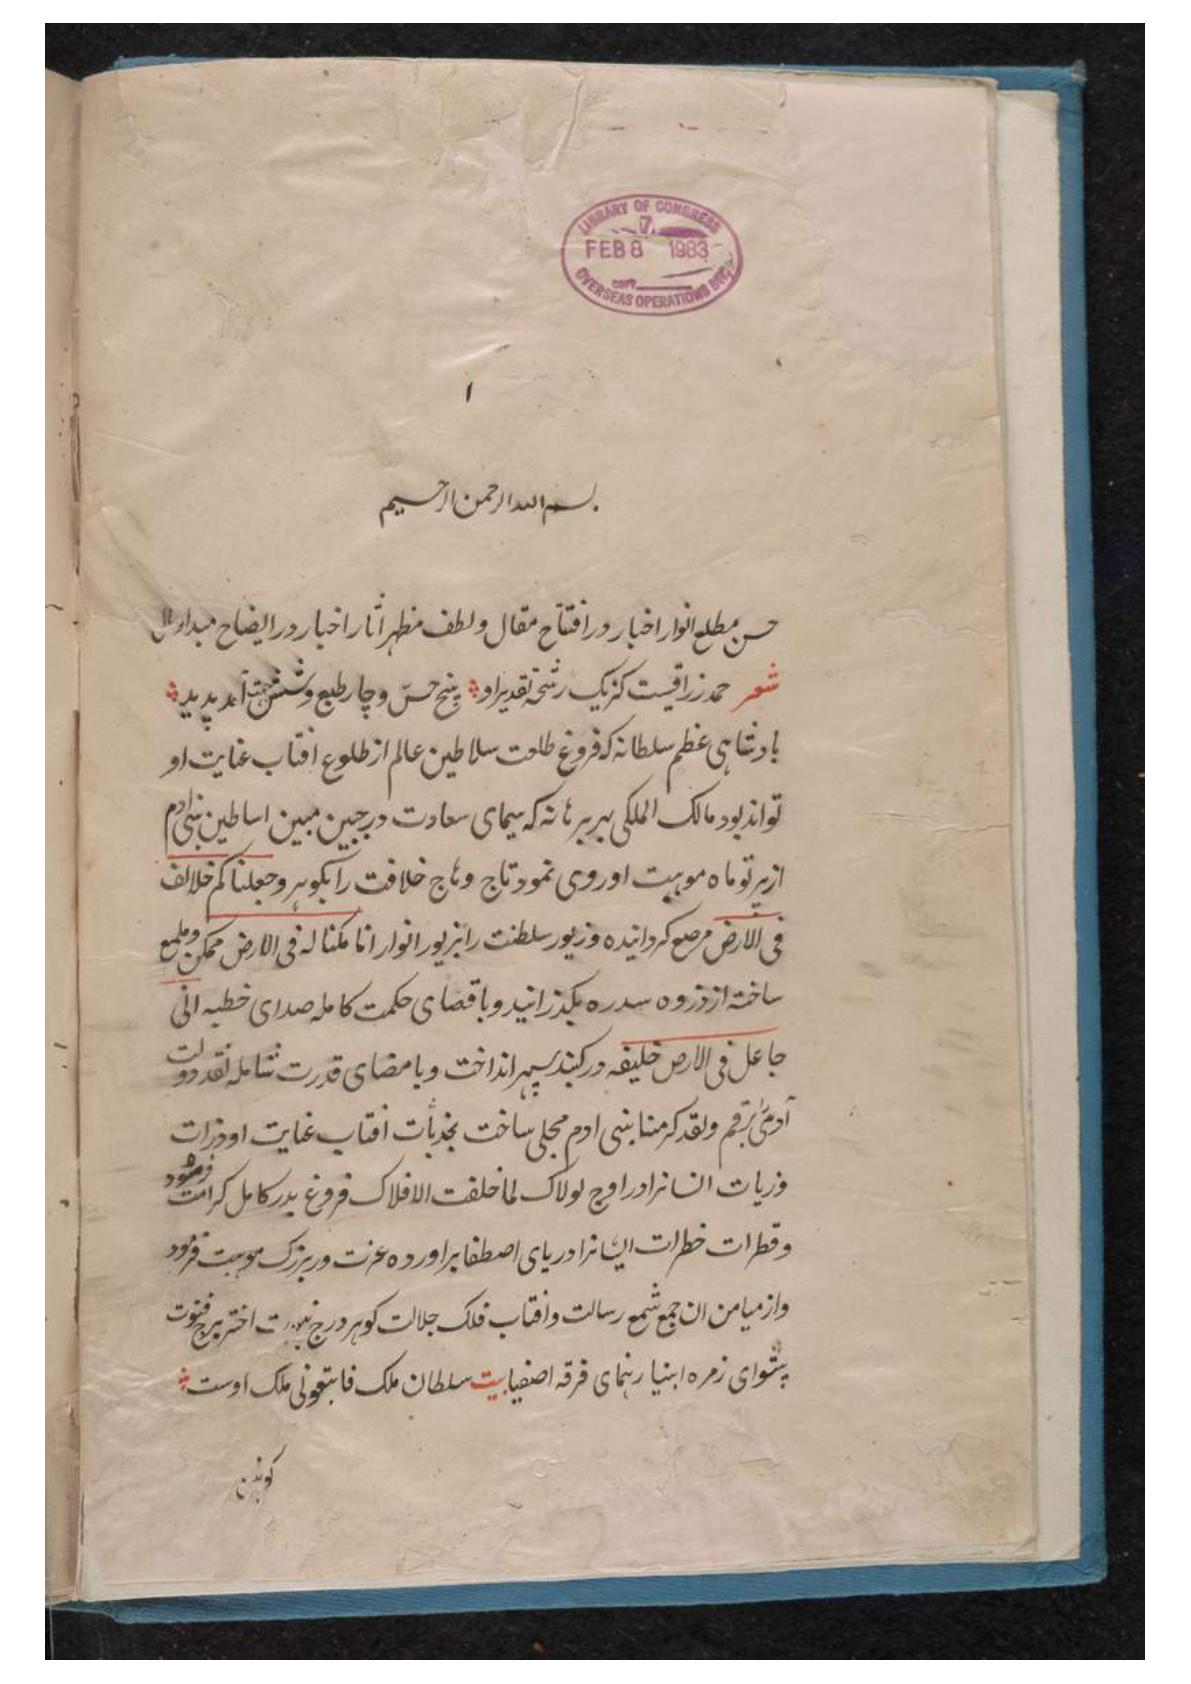 LIBRARY OF CONGRESS
7
FEB 8 1983
COPY
OVERSEAS OPERATIONS DIV.
۱
بسم الله الرحمن الرحیم
حسن مطلع انوار اخبار در افتتاح مقال و لطف مظهر اثار اخیار در ایضاح مبدا و مال
شعر حمد رزاقیست کز یک رشحۀ تقدیر او پنج حسّ و چار طبع و شش جهت آمد پدید
بادشاهی عظم سلطانه که فروغ طلعت سلاطین عالم از طلوع افتاب عنایت او
تواند بود مالک الملکی بهر برهانه که سیمای سعادت در جبین مبین اساطین بنی ادم
از پرتو ماه موهبت او روی نمود تاج وهاج خلافت را بکوهر و جعلناکم خلائف
فی الارض مرصع کردانیده و زیور سلطنت را بزیور انوار انا مکنا له فی الارض ممکن و ملمع
ساخته از ذروه سدره بکذرانید و باقضای حکمت کامله صدای خطبه انی
جاعل فی الارض خلیفه در کنبد سپهر انداخت و بامضای قدرت شامله نقد دولت
آدمی برقم ولقد کرمنا بنی ادم مجلی ساخت بجذبات افتاب عنایت او ذرات
ذریات انسانرا در اوج لولاک لما خلقت الافلاک فروغ بدر کامل کرامت فرمود
و قطرات خطرات ایشانرا دریای اصطفا براورده عزت در بزرک موهبت فرمود
و از میامن ان جمع شمع رسالت و افتاب فلک جلالت کوهر درج نبوت اختر برج فتوت
پیشوای زمره انبیا رهنمای فرقه اصفیا بیت سلطان ملک فاتبعونی ملک اوست
کونین